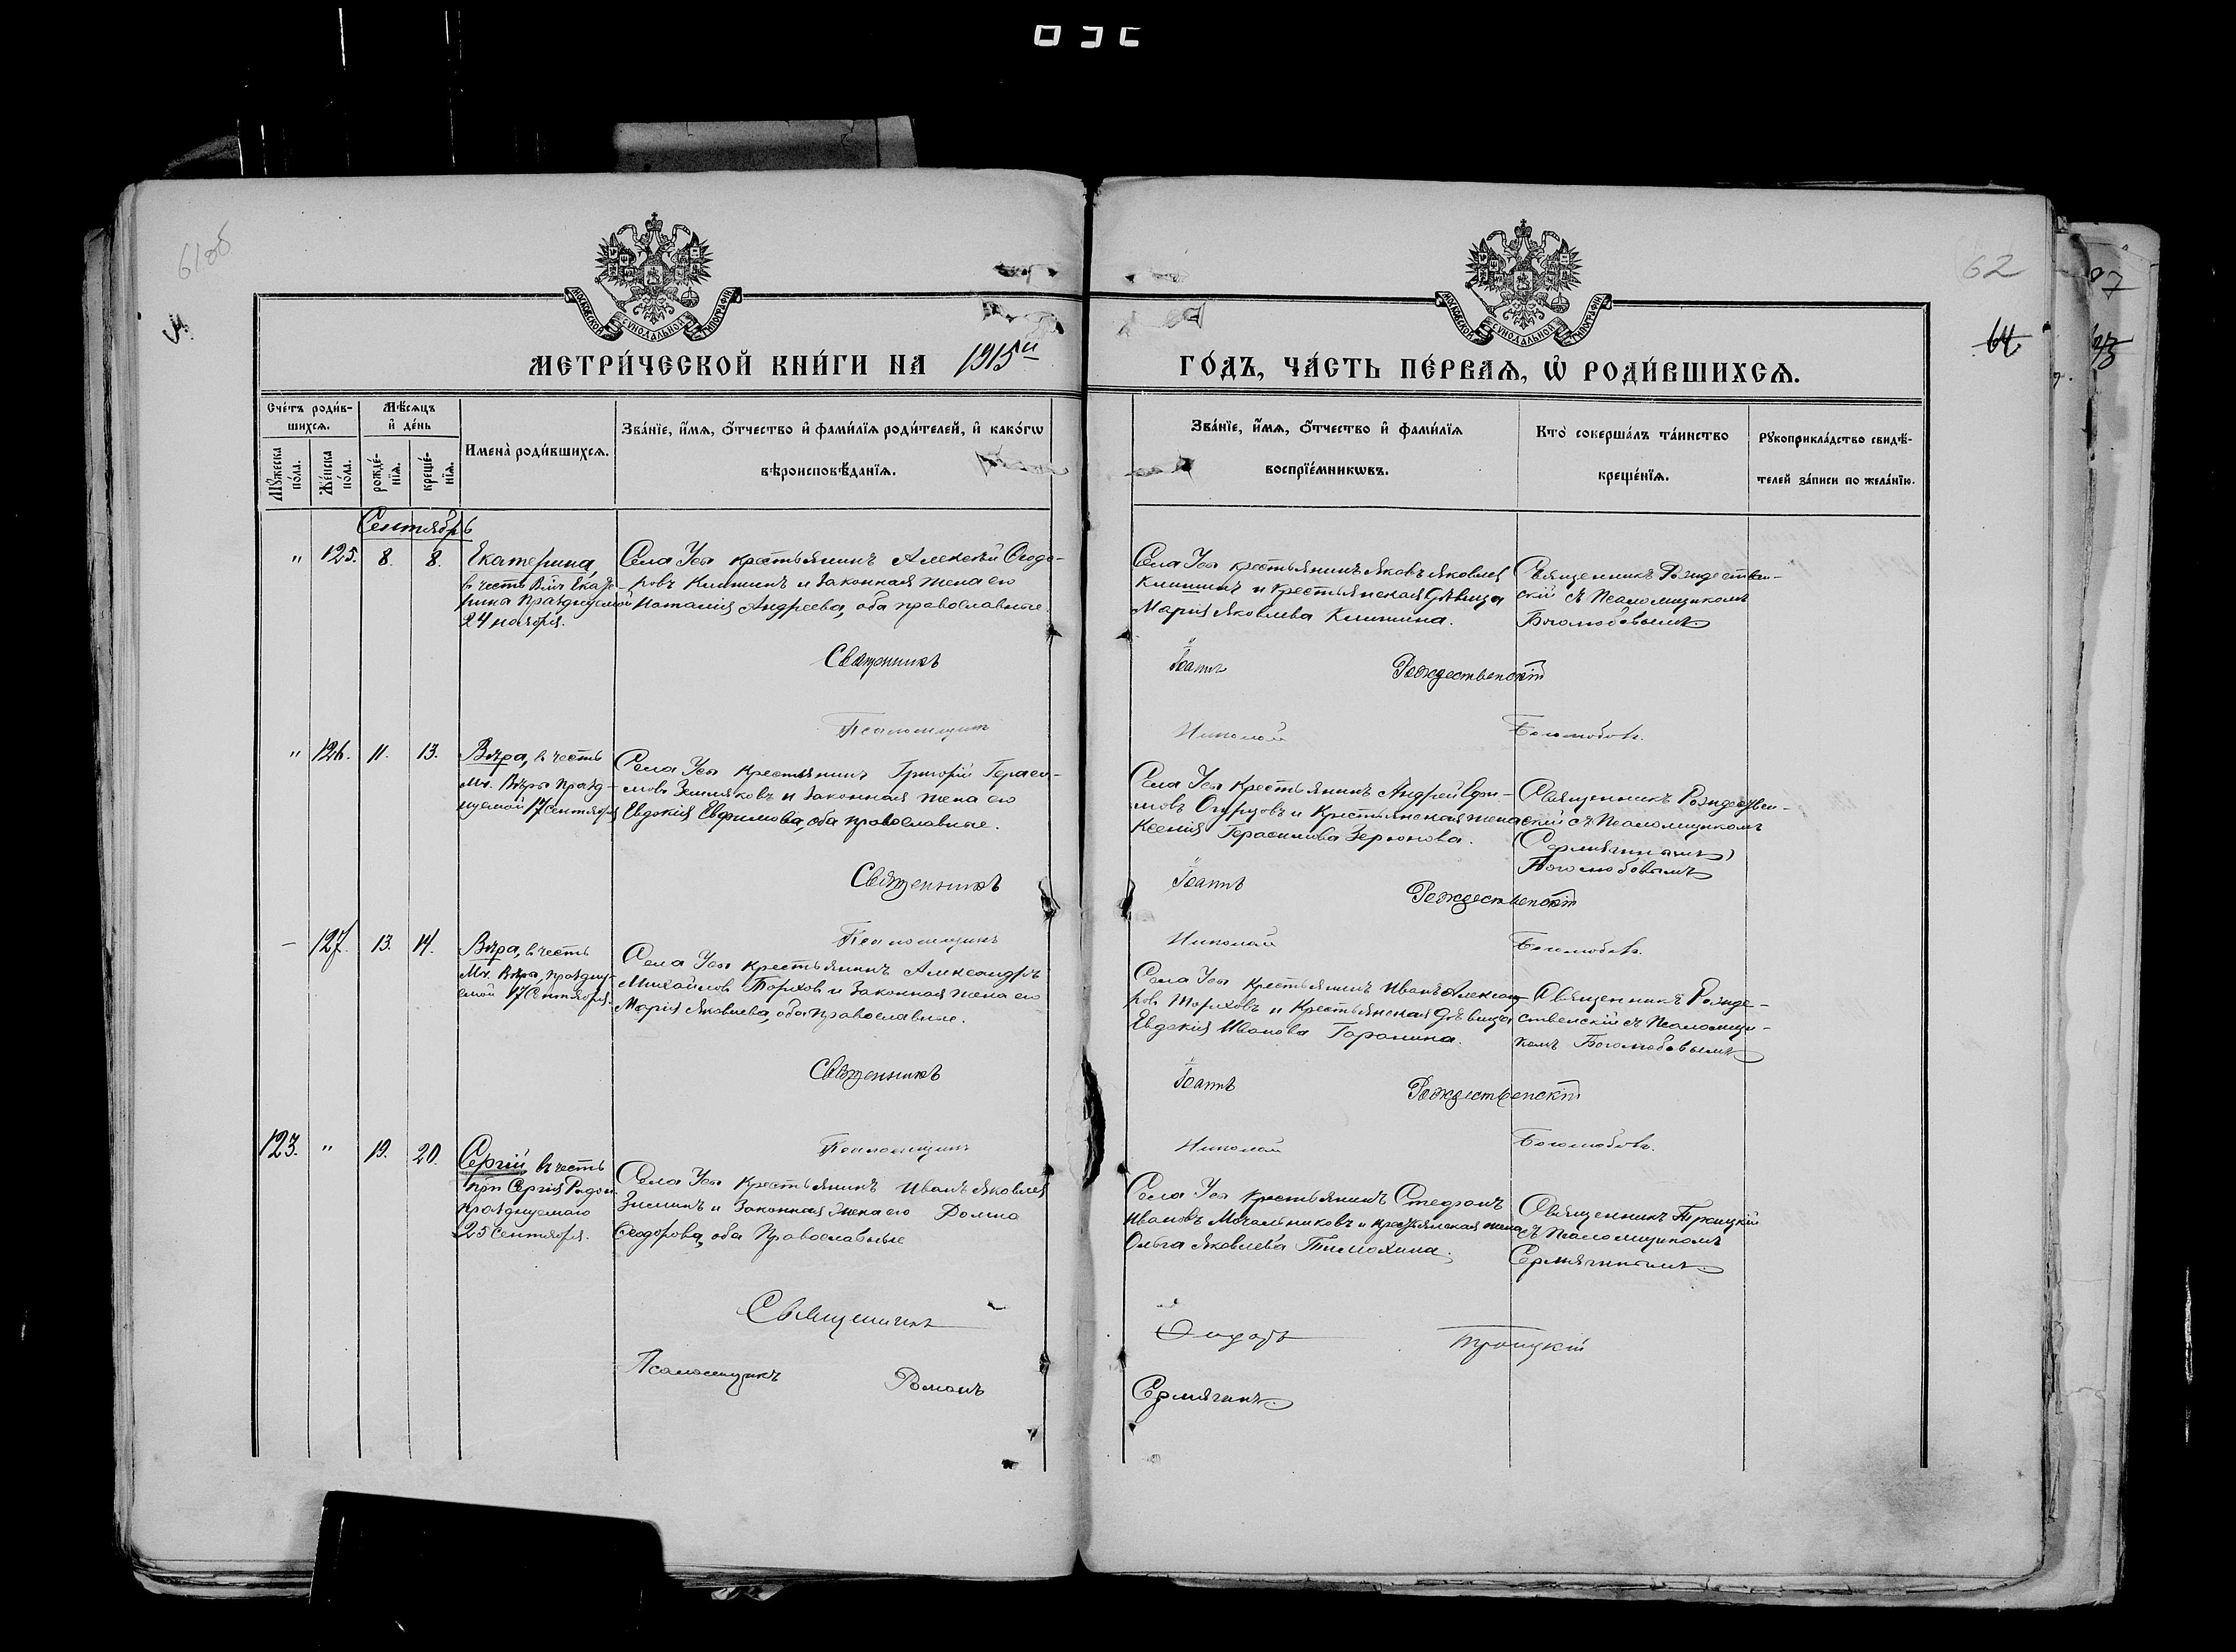 61об
62
64
МОСКОВСКОЙ СѴНОДАЛЬНОЙ ТИПОГРАФІИ
МОСКОВСКОЙ СѴНОДАЛЬНОЙ ТИПОГРАФІИ
МЕТРИ́ЧЕСКОЙ КНИ́ГИ НА 1915й
ГО́ДЪ, ЧА́СТЬ ПЕ́РВАѦ, Ѡ҆ РОДИ́ВШИХСѦ.
Сче́тъ роди́в-
шихсѧ.
Мѣ́сѧцъ
и҆ де́нь
Имена̀ роди́вшихсѧ.
Зва́нїе, и҆́мѧ, ѻ҆́тчество и҆ фами́лїѧ роди́телей, и҆ како́гѡ
вѣроисповѣ́данїѧ.
Мꙋ́жеска
по́ла.
Же́нска
по́ла.
рожде́-
нїѧ.
креще́-
нїѧ.
Зва́нїе, и҆́мѧ, ѻ҆́тчество и҆ фами́лїѧ
воспрїе́мникѡвъ.
Кто̀ соверша́лъ та́инство
креще́нїѧ.
Рꙋкоприкла́дство свидѣ́-
телей за́писи по жела́нїю.
Сентябрь
" 125. 8. 8.
Екатерина,
в честь Вмч Екате-
рина празднуемой
24 ноября.
Села Усы крестьянинъ Алексѣй Ѳеодо-
ровъ Климинъ и законная жена его
Наталия Андреева, оба православные.
Села Усы крестьянинъ Яковъ Яковлев
Климинъ и крестьянская дѣвица
Мария Яковлева Климина.
Священникъ Рождествен-
ский съ Псаломщикомъ
Боголюбовымъ
Священникъ Іоаннъ Рождественскій
Псаломщикъ Николай Боголюбовъ.
" 126. 11. 13.
Вѣра, в честь
Мч. Вѣры празд-
нуемой 17 Сентября
Села Усы крестьянинъ Григорій Гераси-
мовъ Земляковъ и законная жена его
Евдокия Евфимова, оба православные.
Села Усы крестьянинъ Андрей Ефи-
мовъ Огурцовъ и крестьянская жена
Ксения Герасимова Зерюнова.
Священникъ Рождествен-
ский съ Псаломщикомъ
Сермягинымъ
Боголюбовымъ
Священникъ Іоаннъ Рождественскій
Псаломщикъ Николай Боголюбовъ.
– 127. 13. 14.
Вѣра, в честь
Мч. Вѣра, праздну-
емой 17 Сентября.
Села Усы крестьянинъ Александръ
Михайлов Торхов и законная жена его
Мария Яковлева, оба православные.
Села Усы крестьянинъ Иванъ Александ-
ров Торховъ и крестьянская дѣвица
Евдокия Иванова Гаранина.
Священникъ Рожде-
ственский съ Псаломщи-
комъ Боголюбовымъ
Священникъ Іоаннъ Рождественскій
Псаломщикъ Николай Боголюбовъ.
123. " 19. 20.
Сергій в честь
прп Сергия Радон.
празднуемаго
25 сентября.
Села Усы крестьянинъ Иванъ Яковлев
Зиминъ и законная жена его Домна
Ѳеодорова, оба Православные
Села Усы крестьянинъ Стефанъ
Ивановъ Мочальниковъ и крестьянская жена
Ольга Яковлева Тимохина.
Священникъ Троицкій
съ Псаломщикомъ
Сермягинымъ
Священникъ Троицкій
Псаломщикъ Романъ Сермягинъ